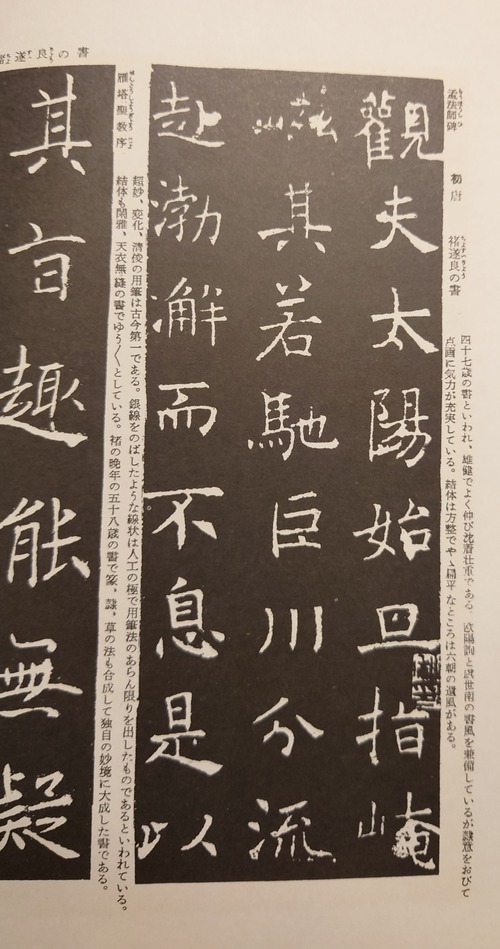 孟法師碑
初唐
褚遂良の書
四十七歳の書といわれ、雄健でよく伸び沈着壮重である。欧陽詢と虞世南の書風を兼備しているが隷意をおびて
点画に気力が充実している。結体は方整でやゝ扁平なところは六朝の遺風がある。
觀夫太陽始旦指崦
嵫其若馳巨川分流
赴渤澥而不息是以
雁塔聖教序
超妙、変化、清俊の用筆は古今第一である。銀線をのばしたような線状は人工の極で用筆法のあらん限りを出したものであるといわれている。
結体も閑雅、天衣無縫の書でゆう〱としている。褚の晩年の五十八歳の書で篆、隷、草の法も合成して独自の妙境に大成した書である。
遂良の書
其旨趣能無疑